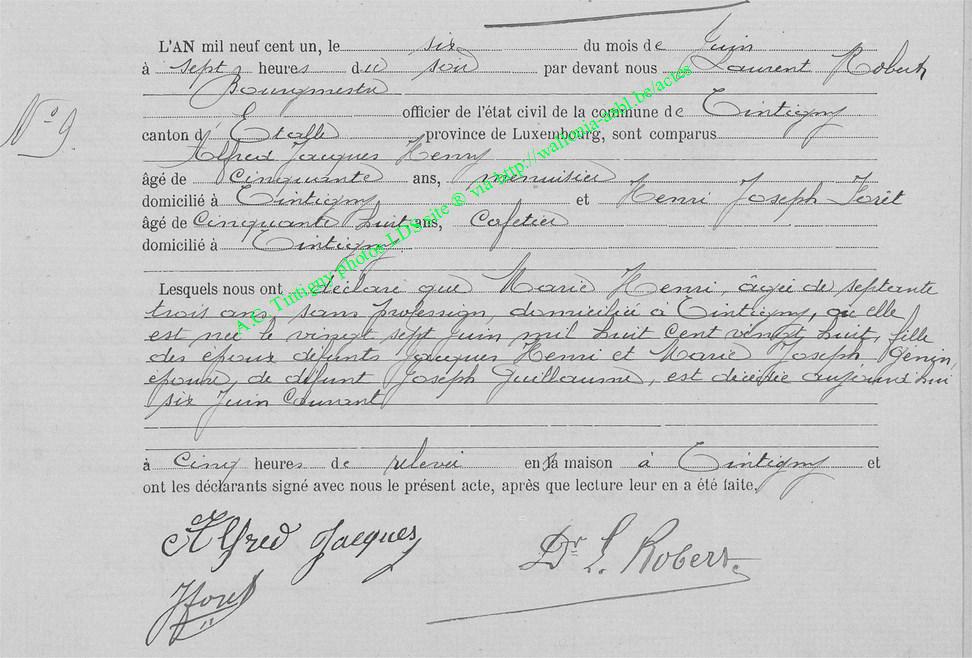 L'AN mil neuf cent un, le six du mois de Juin
à sept heures du soir par devant nous Laurent Robert
Bourgmestre
officier de l'état civil de la commune de Tintigny
N° 9.
canton d' Etalle province de Luxembourg, sont comparus
Alfred Jacques Henry
âgé de Cinquante ans, menuisier
domicilié à Tintigny et Henri Joseph Forêt
âgé de Cinquante huit ans, Cafetier
domicilié à Tintigny
Lesquels nous ont déclaré que Marie Henri, âgée de septante
trois ans, sans profession, domiciliée à Tintigny, où elle
est née le vingt sept Juin mil huit cent vingt huit, fille
des époux défunts Jacques Henri et Marie Joseph Génin,
épouse, de défunt Joseph Guillaume, est décédée aujourd'hui
six Juin Courant
à Cinq heures de relevée en sa maison à Tintigny et
ont les déclarants signé avec nous le présent acte, après que lecture leur en a été faite,
Alfred Jacques
Dr L. Robert.
Hforet
A.C. Tintigny photos LDS site ® via http://wallonia-asbl.be/actes